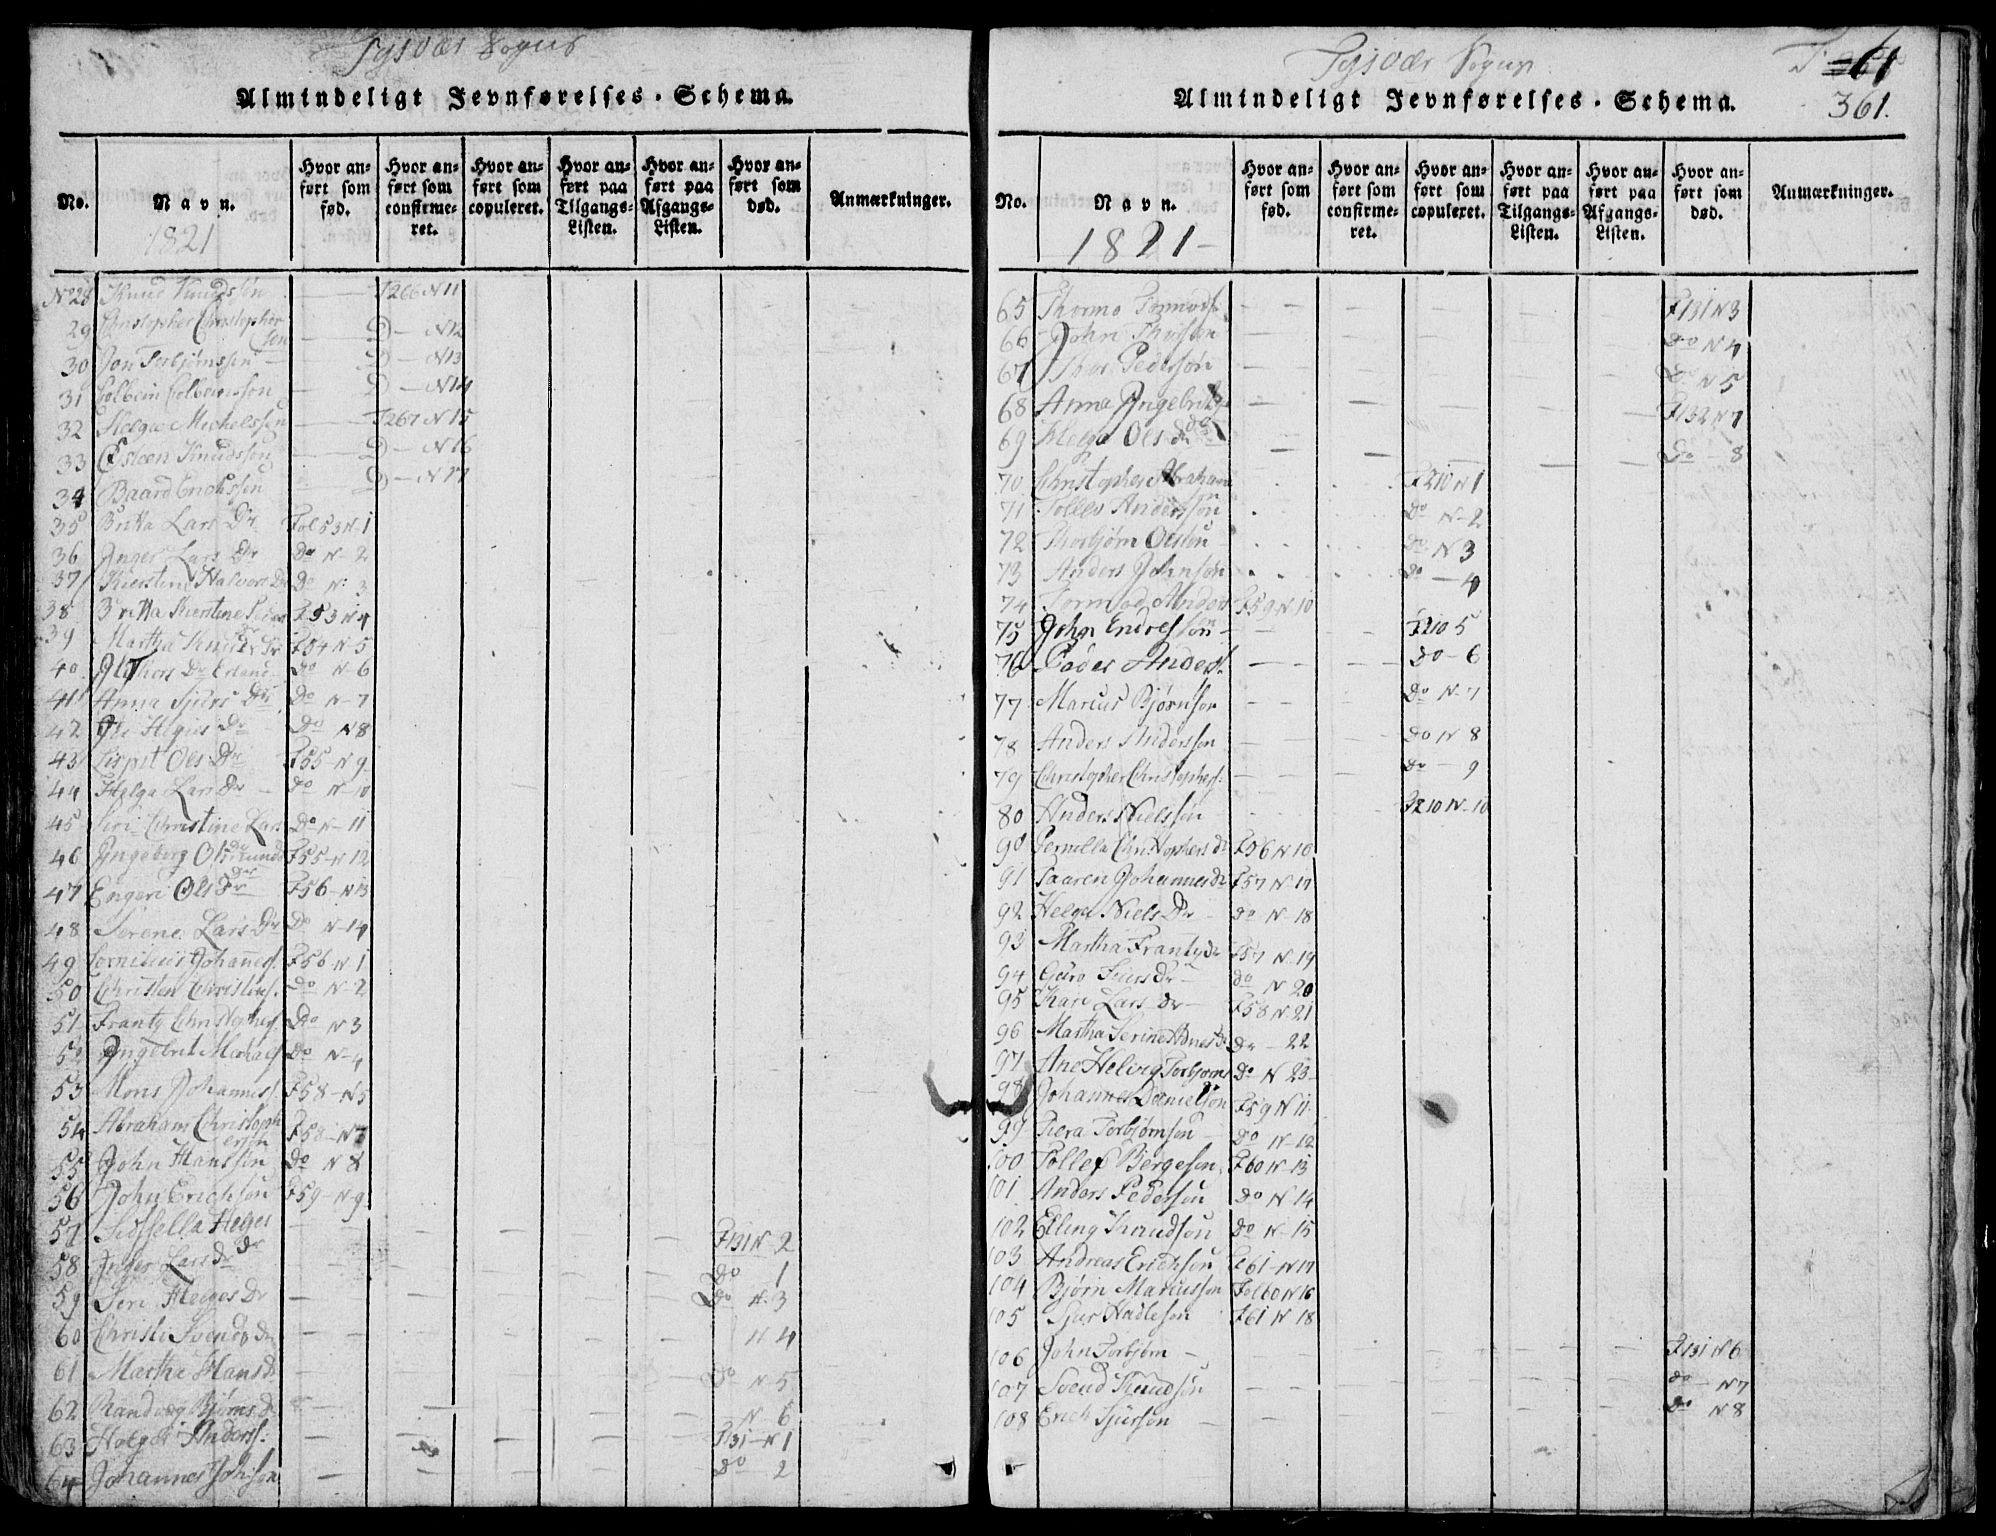 Tysvær Sogns
Almindeligt Jevnførelses-Schema.
No.
Navn.
Hvor anført som fød.
Hvor anført som confirmeret.
Hvor anført som copuleret.
Hvor anført paa Tilgangs-Listen.
Hvor anført paa Afgangs-Listen.
Hvor anført som død.
Anmærkninger.
1821
No 28 Knud Knudssøn — F266 N11
29 Christopher Christophersen — D — N12
30 Jon Torbjørnssen — D — N13
31 Colbein Colbeinsson — D — N14
32 Helge Michelssen — F267 N15
33 Østeen Knudsson — D — N16
34 Baard Erichssen — D — N17
35 Britta Lars Dr Fol 53 N-1
36 Inger Lars Dr Do N-2
37 Kierstine Halvors Dr Do N: 3
38 Britta Kierstine Peders Dr F53 N4
39 Martha Knuds Dr F54 N-5
40 Do N-6
41 Anna Sjurs Dr Do N-7
42 Dr Do N8
43 Lispit Ols Dr F55 N9
44 Helga Lars Dr Do N-10
45 Siri Christine Lars Do N-11
46 Ingeborg Dr F55-N12
47 Engeri Ols Dr F56-N13
48 Serene Lars Dr Do N-14
49 Cornelius Johannes. F56 N1
50 Christen Christens. Do N-2
51 Frantz Christophers. Do N3
52 Ingebret Michaels Do N-4
53 Mons Johanness. F58-N5
54 Abraham Christophersen F58-N7
55 John Hanssøn Do N8
56 John Erichsøn F59-N9
57 Sissella Helges Dr F131 N-2
58 Inger Lars Dr Do 1
59 Siri Helges Dr Do N-3
60 Christi Svends Dr N4
61 Martha Hans Dr Do N5
62 Randveg Bjørns Dr N6
63 Holger Anderss: F131-N1
64 Johannes Johnsøn Do 2
Tysvær Sogns
361.
Almindeligt Jevnførelses-Schema.
No.
Navn.
Hvor anført som fød.
Hvor anført som confirmeret.
Hvor anført som copuleret.
Hvor anført paa Tilgangs-Listen.
Hvor anført paa Afgangs-Listen.
Hvor anført som død.
Anmærkninger.
1821-
65 Thormo Tormods. F131 N3
66 John Thorsøn Do N4
67 Thor Pedersøn Do N5
68 Anna Ingebrigts Dr F132 N7
69 Helga Ols Dr Do 8
70 Christopher Abrahamsøn F210 N1
71 Tollev Anderssøn Do N-2
72 Thorbjørn Olsøn Do N3
73 Anders Johnsøn Do — 4
74 Tormod Anders F59 N10
75 John Endressøn F210 5
76 Peder Anders. Do — 6
77 Marcus Bjørnsøn Do N-7
78 Anders Anderssøn Do N8
79 Christopher Christophers: Do — 9
80 Anders Nielssøn F210 N-10
90 Pernilla Christophers Dr F56 N16
91 Saaren Johannes Dr F57 N17
92 Helga Niels Dr Do N-18
93 Martha Frantz Dr F57 N-19
94 Guro Siurs Dr Do N20
95 Kari Lars Dr F58 N21
96 Martha Serine Dr Do — 22
97 Ane Helvig Torbjørns Do N23
98 Johannes Danielsøn F59 N11
99 Torbjørnsøn Do N-12
100 Tollef Bergesøn F60 N-13
101 Anders Pedersøn Do N14
102 Elling Knudsøn Do N-15
103 Andreas Erichsøn F61-N17
104 Bjørn Marcussøn Fol 60 N16
105 Sjur Hadlesøn F61 N18
106 John Torbjørn — F131 N6
107 Svend Knudsøn Do — N7
108 Erich Sjursøn Do N8